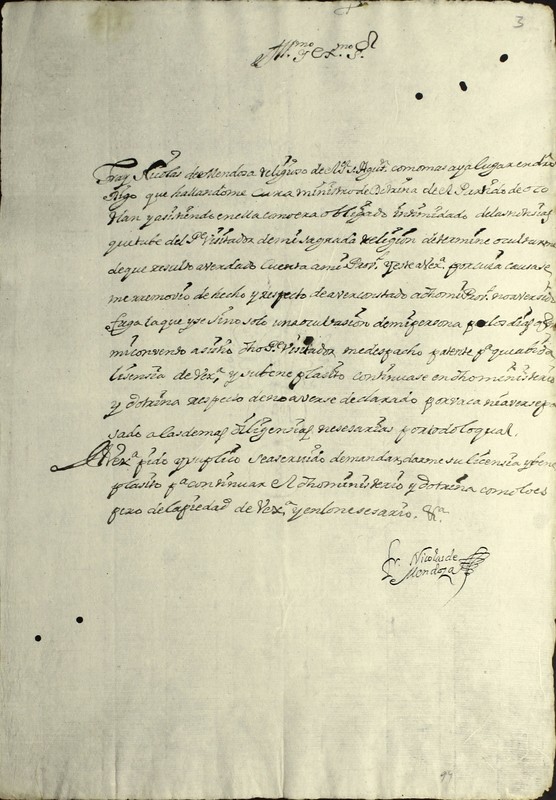 3
Yll.mo y Ex.mo S.r
Fray Nicolas de Mendoza religioso de N. P. S. Agus.n como mas aya lugar en dro
digo que hallandome cura ministro de dotrina de el Partido de
tlan y asistiendo en ella como era obligado intimidado de las noticias
que tube del P.e Visitador de mi sagrada religion determine ocultarme
de que resulto aver dado cuenta a mi Prov.l y este a Vex.a por cuia causa se
me removio de hecho y respecto de aver constado a dho mi Prov.l no aver sido
fuga la que yse sino solo una ocultasion de mi persona por los dias q
mi convento asistio dho P.e Visitador me despacho patente p.a que avida
lisensia de Vex.a y su beneplasito continuase en dho ministerio
y dotrina respecto de no averse declarado por vaca ni averse pa
sado a las demas diligensias nesesarias por todo lo qual
A Vex.a pido y suplico sea servido de mandar darme su lisensia y bene
plasito p.a continuar el dho ministerio y dotrina como lo es
pero de la piedad de Vex.a y en lo nesesario. &.a
Fr. Nicolas de
Mendoza